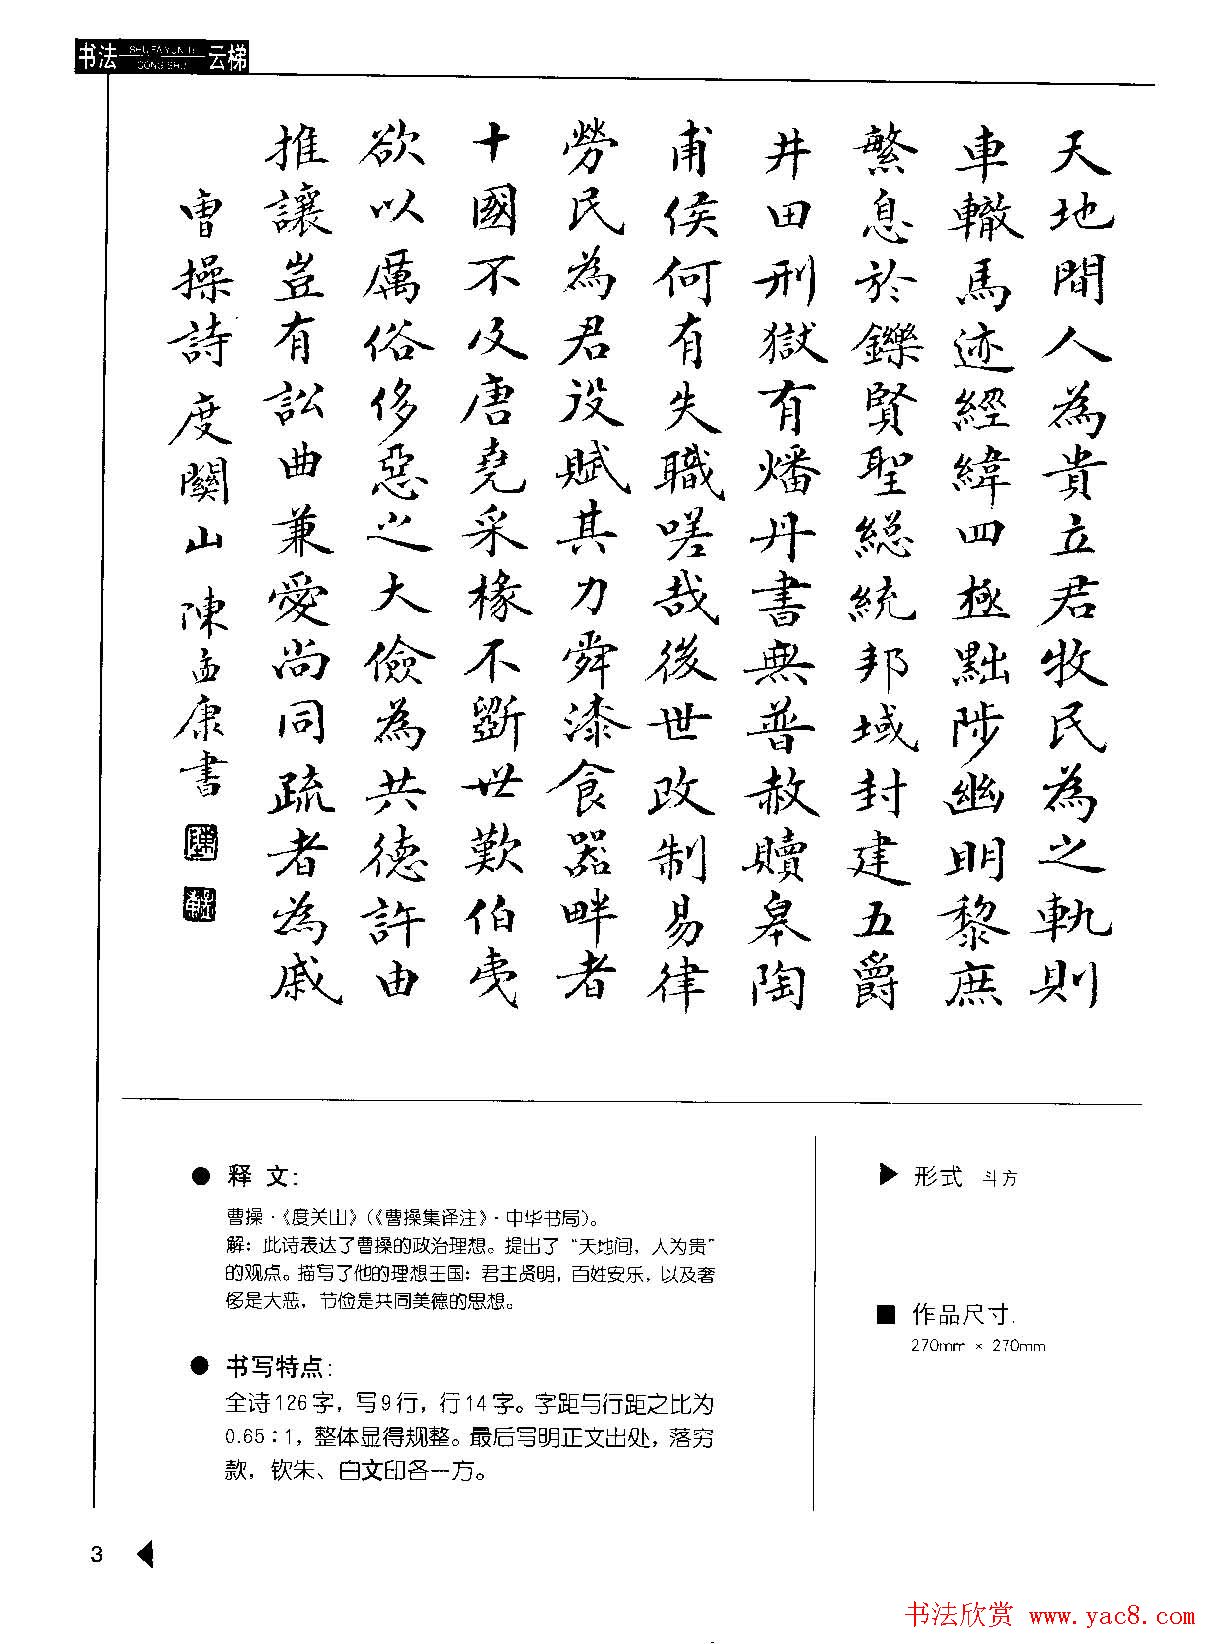 书法 SHU FA YUN TI 云梯
GONG SHU
天地間人為貴立君牧民為之軌則
車轍馬迹經緯四極黜陟幽明黎庶
繁息於鑠賢聖總統邦域封建五爵
井田刑獄有燔丹書無普赦贖皋陶
甫侯何有失職嗟哉後世改制易律
勞民為君设賦其力舜漆食器畔者
十國不及唐堯采椽不斲世歎伯夷
欲以厲俗侈惡之大儉為共德許由
推讓豈有訟曲兼愛尚同疏者為戚
曹操詩度關山陳孟康書
● 释 文:
曹操·《度关山》(《曹操集译注》·中华书局)。
解：此诗表达了曹操的政治理想。提出了“天地间，人为贵”
的观点。描写了他的理想王国：君主贤明，百姓安乐，以及奢
侈是大恶，节俭是共同美德的思想。
● 书写特点:
全诗126字，写9行，行14字。字距与行距之比为
0.65：1，整体显得规整。最后写明正文出处，落穷
款，钦朱、白文印各一方。
▶ 形式 斗方
■ 作品尺寸.
270mm × 270mm
3 ◀
书法欣赏 www.yac8.com